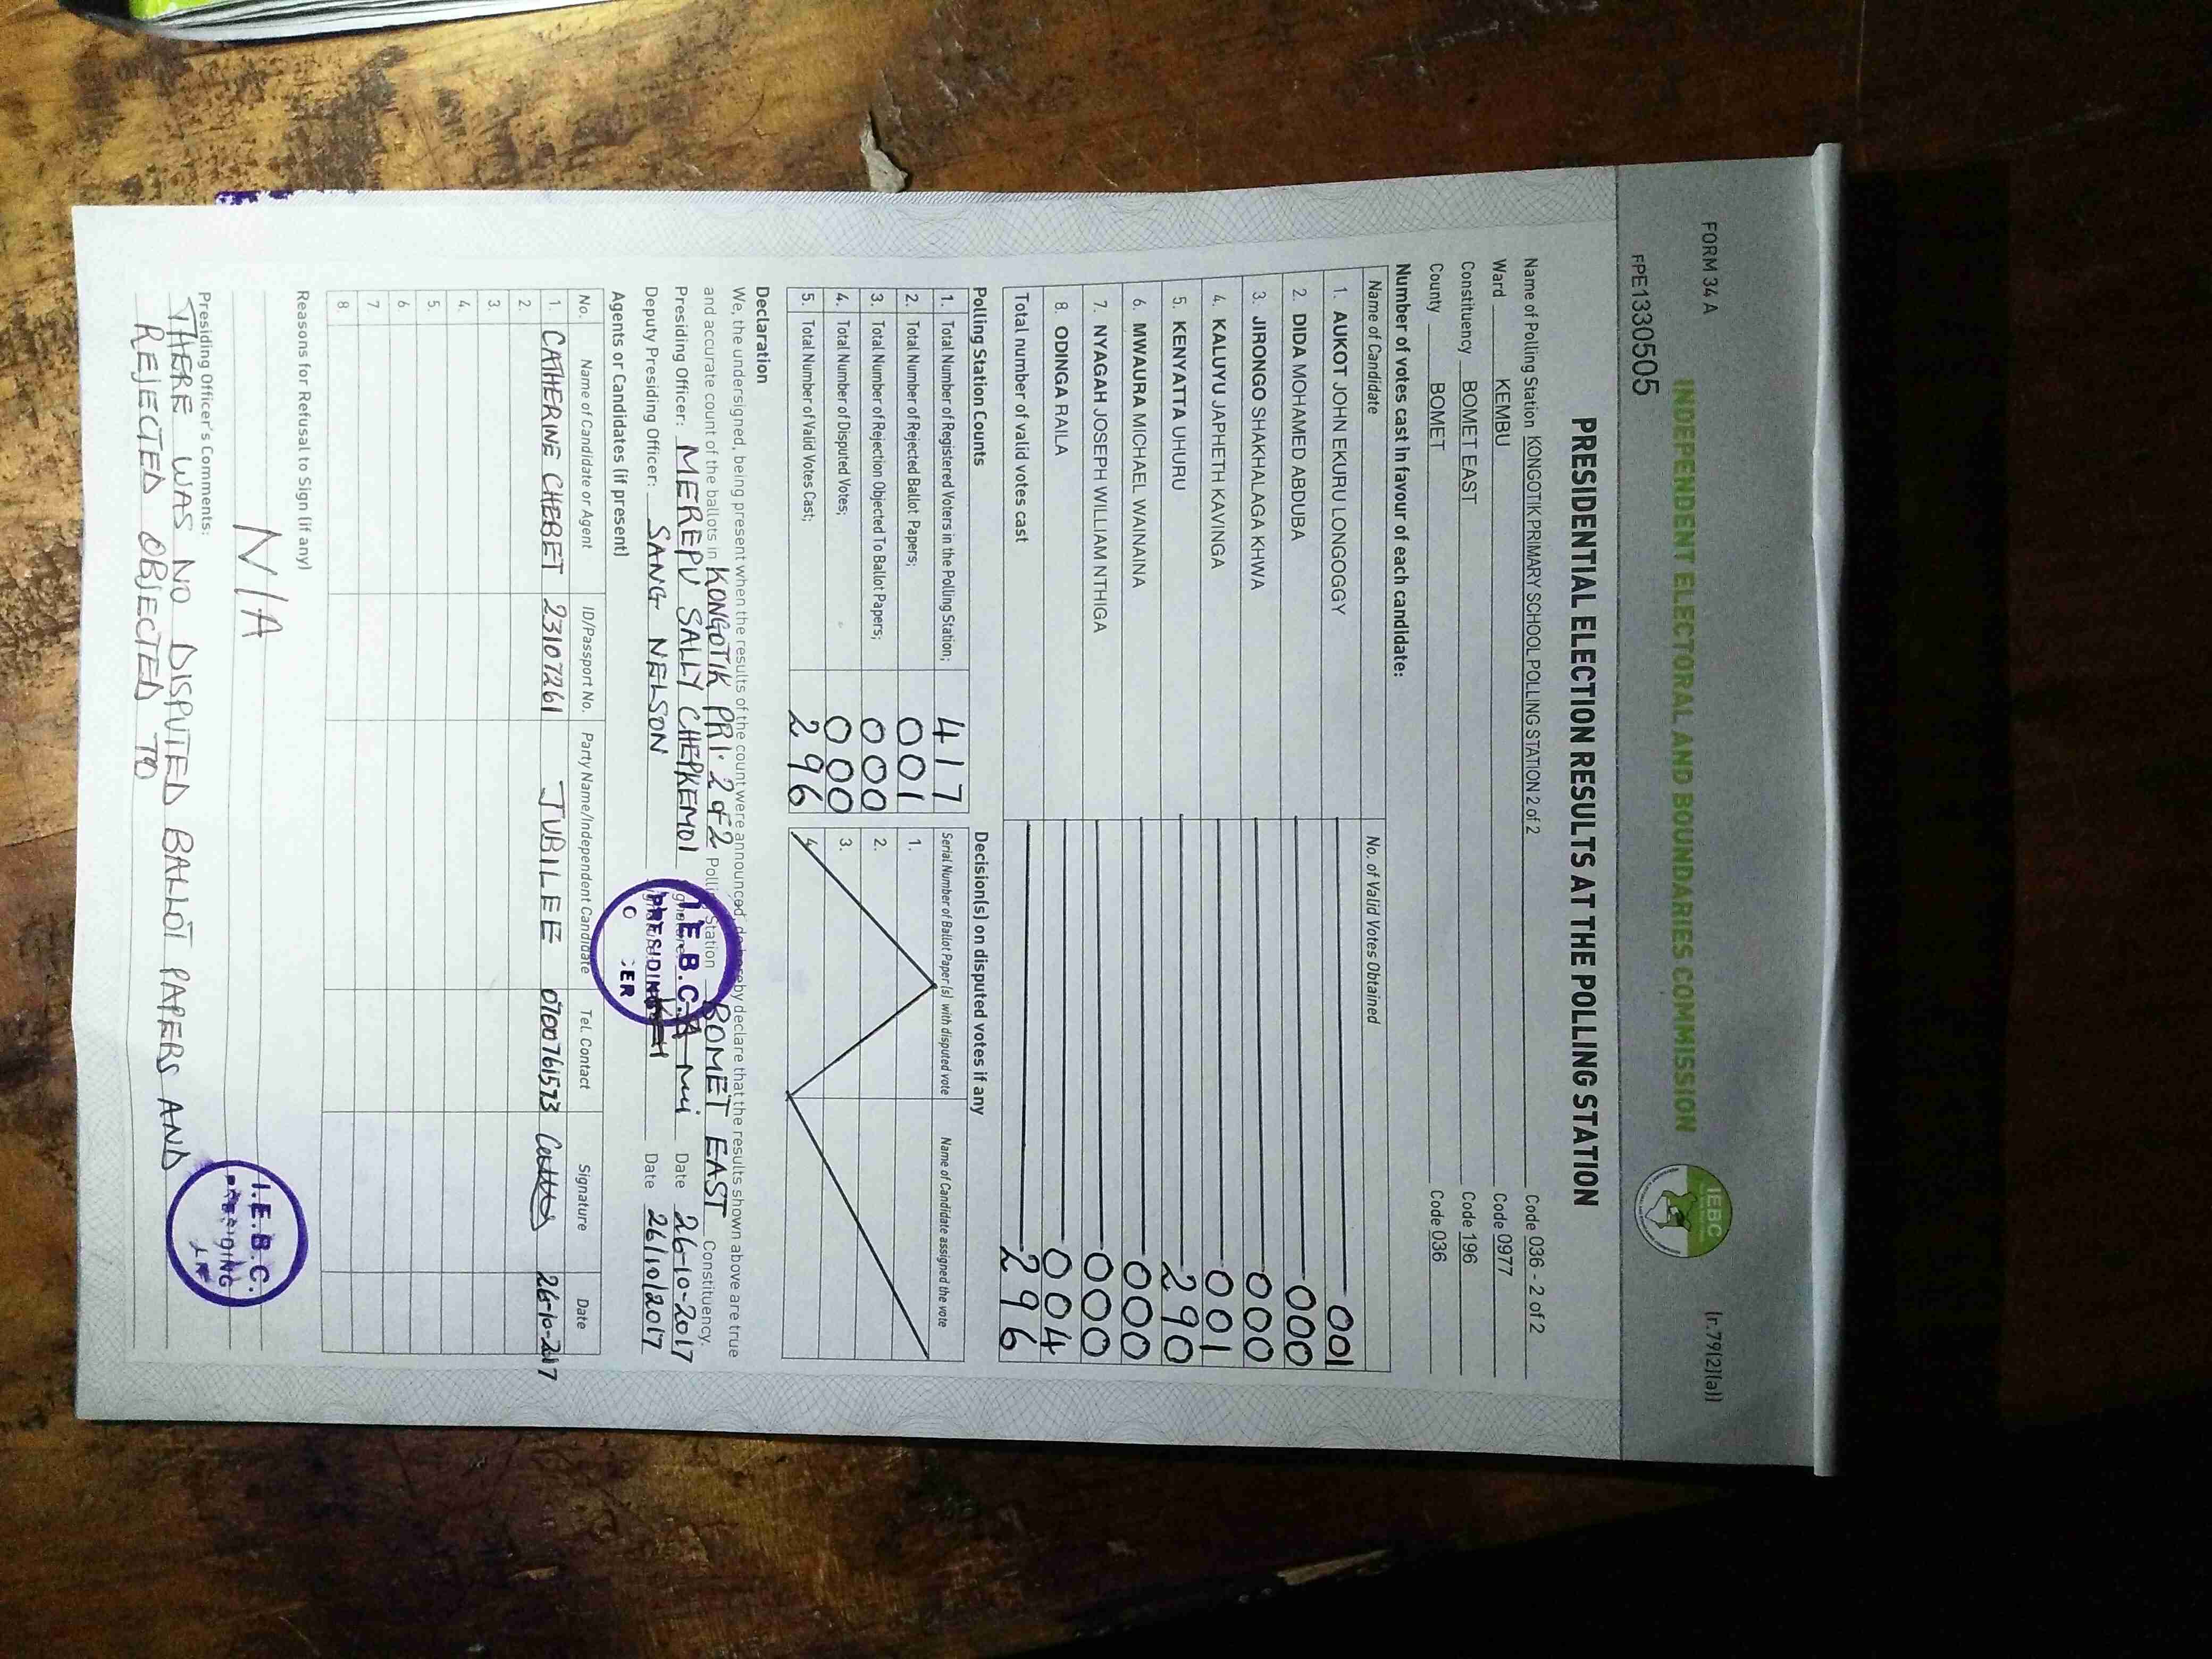 FORM 34 A
(r.79(2)(a))
INDEPENDENT ELECTORAL AND BOUNDARIES COMMISSION
IEBC
FPE1330505
PRESIDENTIAL ELECTION RESULTS AT THE POLLING STATION
Name of Polling Station KONGOTIK PRIMARY SCHOOL POLLING STATION 2 of 2 Code 036 - 2 of 2
Ward KEMBU Code 0977
Constituency BOMET EAST Code 196
County BOMET Code 036
Number of votes cast in favour of each candidate:
Name of Candidate No. of Valid Votes Obtained
1. AUKOT JOHN EKURU LONGOGGY 001
2. DIDA MOHAMED ABDUBA 000
3. JIRONGO SHAKHALAGA KHWA 000
4. KALUYU JAPHETH KAVINGA 001
5. KENYATTA UHURU 290
6. MWAURA MICHAEL WAINAINA 000
7. NYAGAH JOSEPH WILLIAM NTHIGA 000
8. ODINGA RAILA 004
Total number of valid votes cast 296
Polling Station Counts Decision(s) on disputed votes if any
1. Total Number of Registered Voters in the Polling Station; 417 Serial Number of Ballot Paper(s) with disputed vote Name of Candidate assigned the vote
2. Total Number of Rejected Ballot Papers; 001 1.
3. Total Number of Rejection Objected To Ballot Papers; 000 2.
4. Total Number of Disputed Votes; 000 3.
5. Total Number of Valid Votes Cast; 296 4.
Declaration
We, the undersigned, being present when the results of the count were announced, do hereby declare that the results shown above are true
and accurate count of the ballots in KONGOTIK PRI. 2 of 2 Polling Station BOMET EAST Constituency.
Presiding Officer: MEREPU SALLY CHEPKEMOI Date 26-10-2017
Deputy Presiding Officer: SANG NELSON Date 26/10/2017
I.E.B.C.
PRESIDING
Agents or Candidates (if present)
No. Name of Candidate or Agent ID/Passport No. Party Name/Independent Candidate Tel. Contact Signature Date
1. CATHERINE CHEBET 23107261 JUBILEE 0700761573 26-10-217
2.
3.
4.
5.
6.
7.
8.
Reasons for Refusal to Sign (if any)
N/A
Presiding Officer's Comments:
THERE WAS NO DISPUTED BALLOT PAPERS AND
REJECTED OBJECTED TO
I.E.B.C.